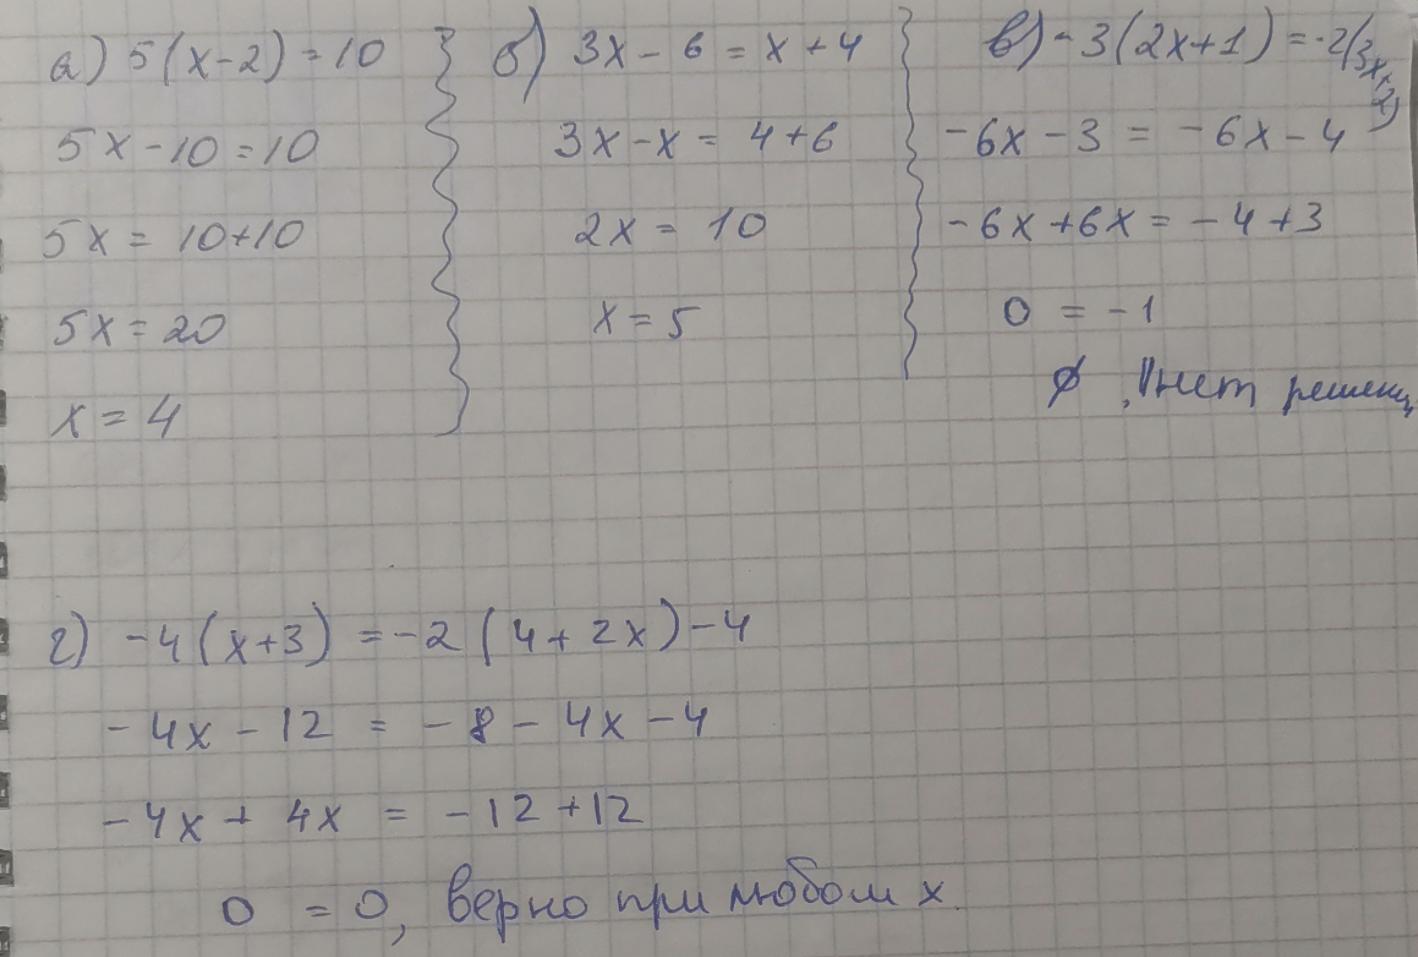 а) 5(x-2)=10
5x-10=10
5x=10+10
5x=20
x=4
б) 3x-6=x+4
3x-x=4+6
2x=10
x=5
в) -3(2x+1)=-2(3x+2)
-6x-3=-6x-4
-6x+6x=-4+3
0=-1
∅, нет
г) -4(x+3)=-2(4+2x)-4
-4x-12=-8-4x-4
-4x+4x=-12+12
0=0, верно при любом x.